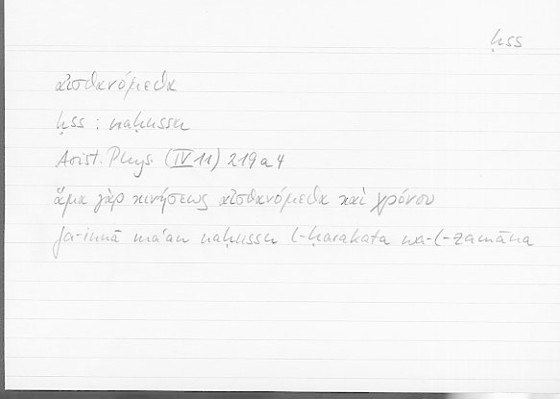 ḥss
αἰσθανόμεθα
ḥss : naḥussu
Arist. Phys. (IV 11) 219a4
ἅμα γὰρ κινήσεως αἰσθανόμεθα καὶ χρόνου
fa-innā maʿan naḥussu l-ḥarakata wa-l-zamāna